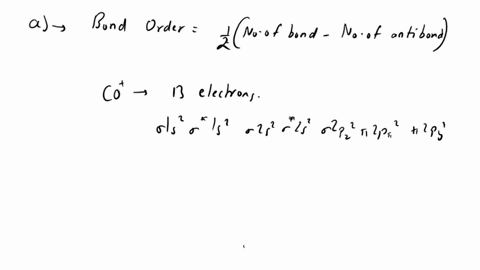 a) → Bond Order = 1/2 (No. of bond - No. of antibond)
CO⁺ → 13 electrons.
σ1s² σ*1s² σ2s² σ*2s² σ2p_z² π2p_x² π2p_y¹